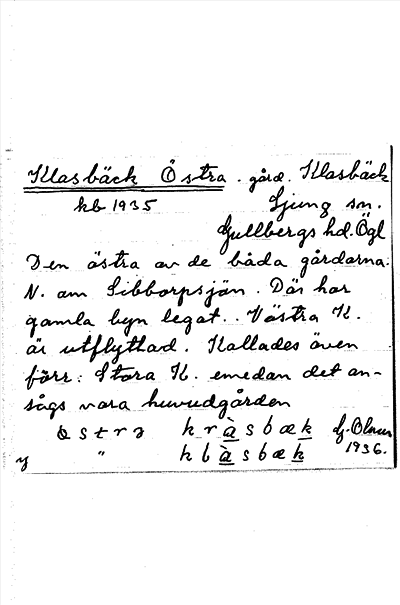 Klasbäck Östra . gård. Klasbäck
kb 1935 Ljung sn.
Gullbergs hd. Ögl
Den östra av de båda gårdarna.
N. om Sibborpsjön. Där har
gamla byn legat. Västra K.
är utflyttad. Kallades även
förr: Stora K. emedan det an-
sågs vara huvudgården
östrə kràsbæk G.
y " kbàsbæk 1936.